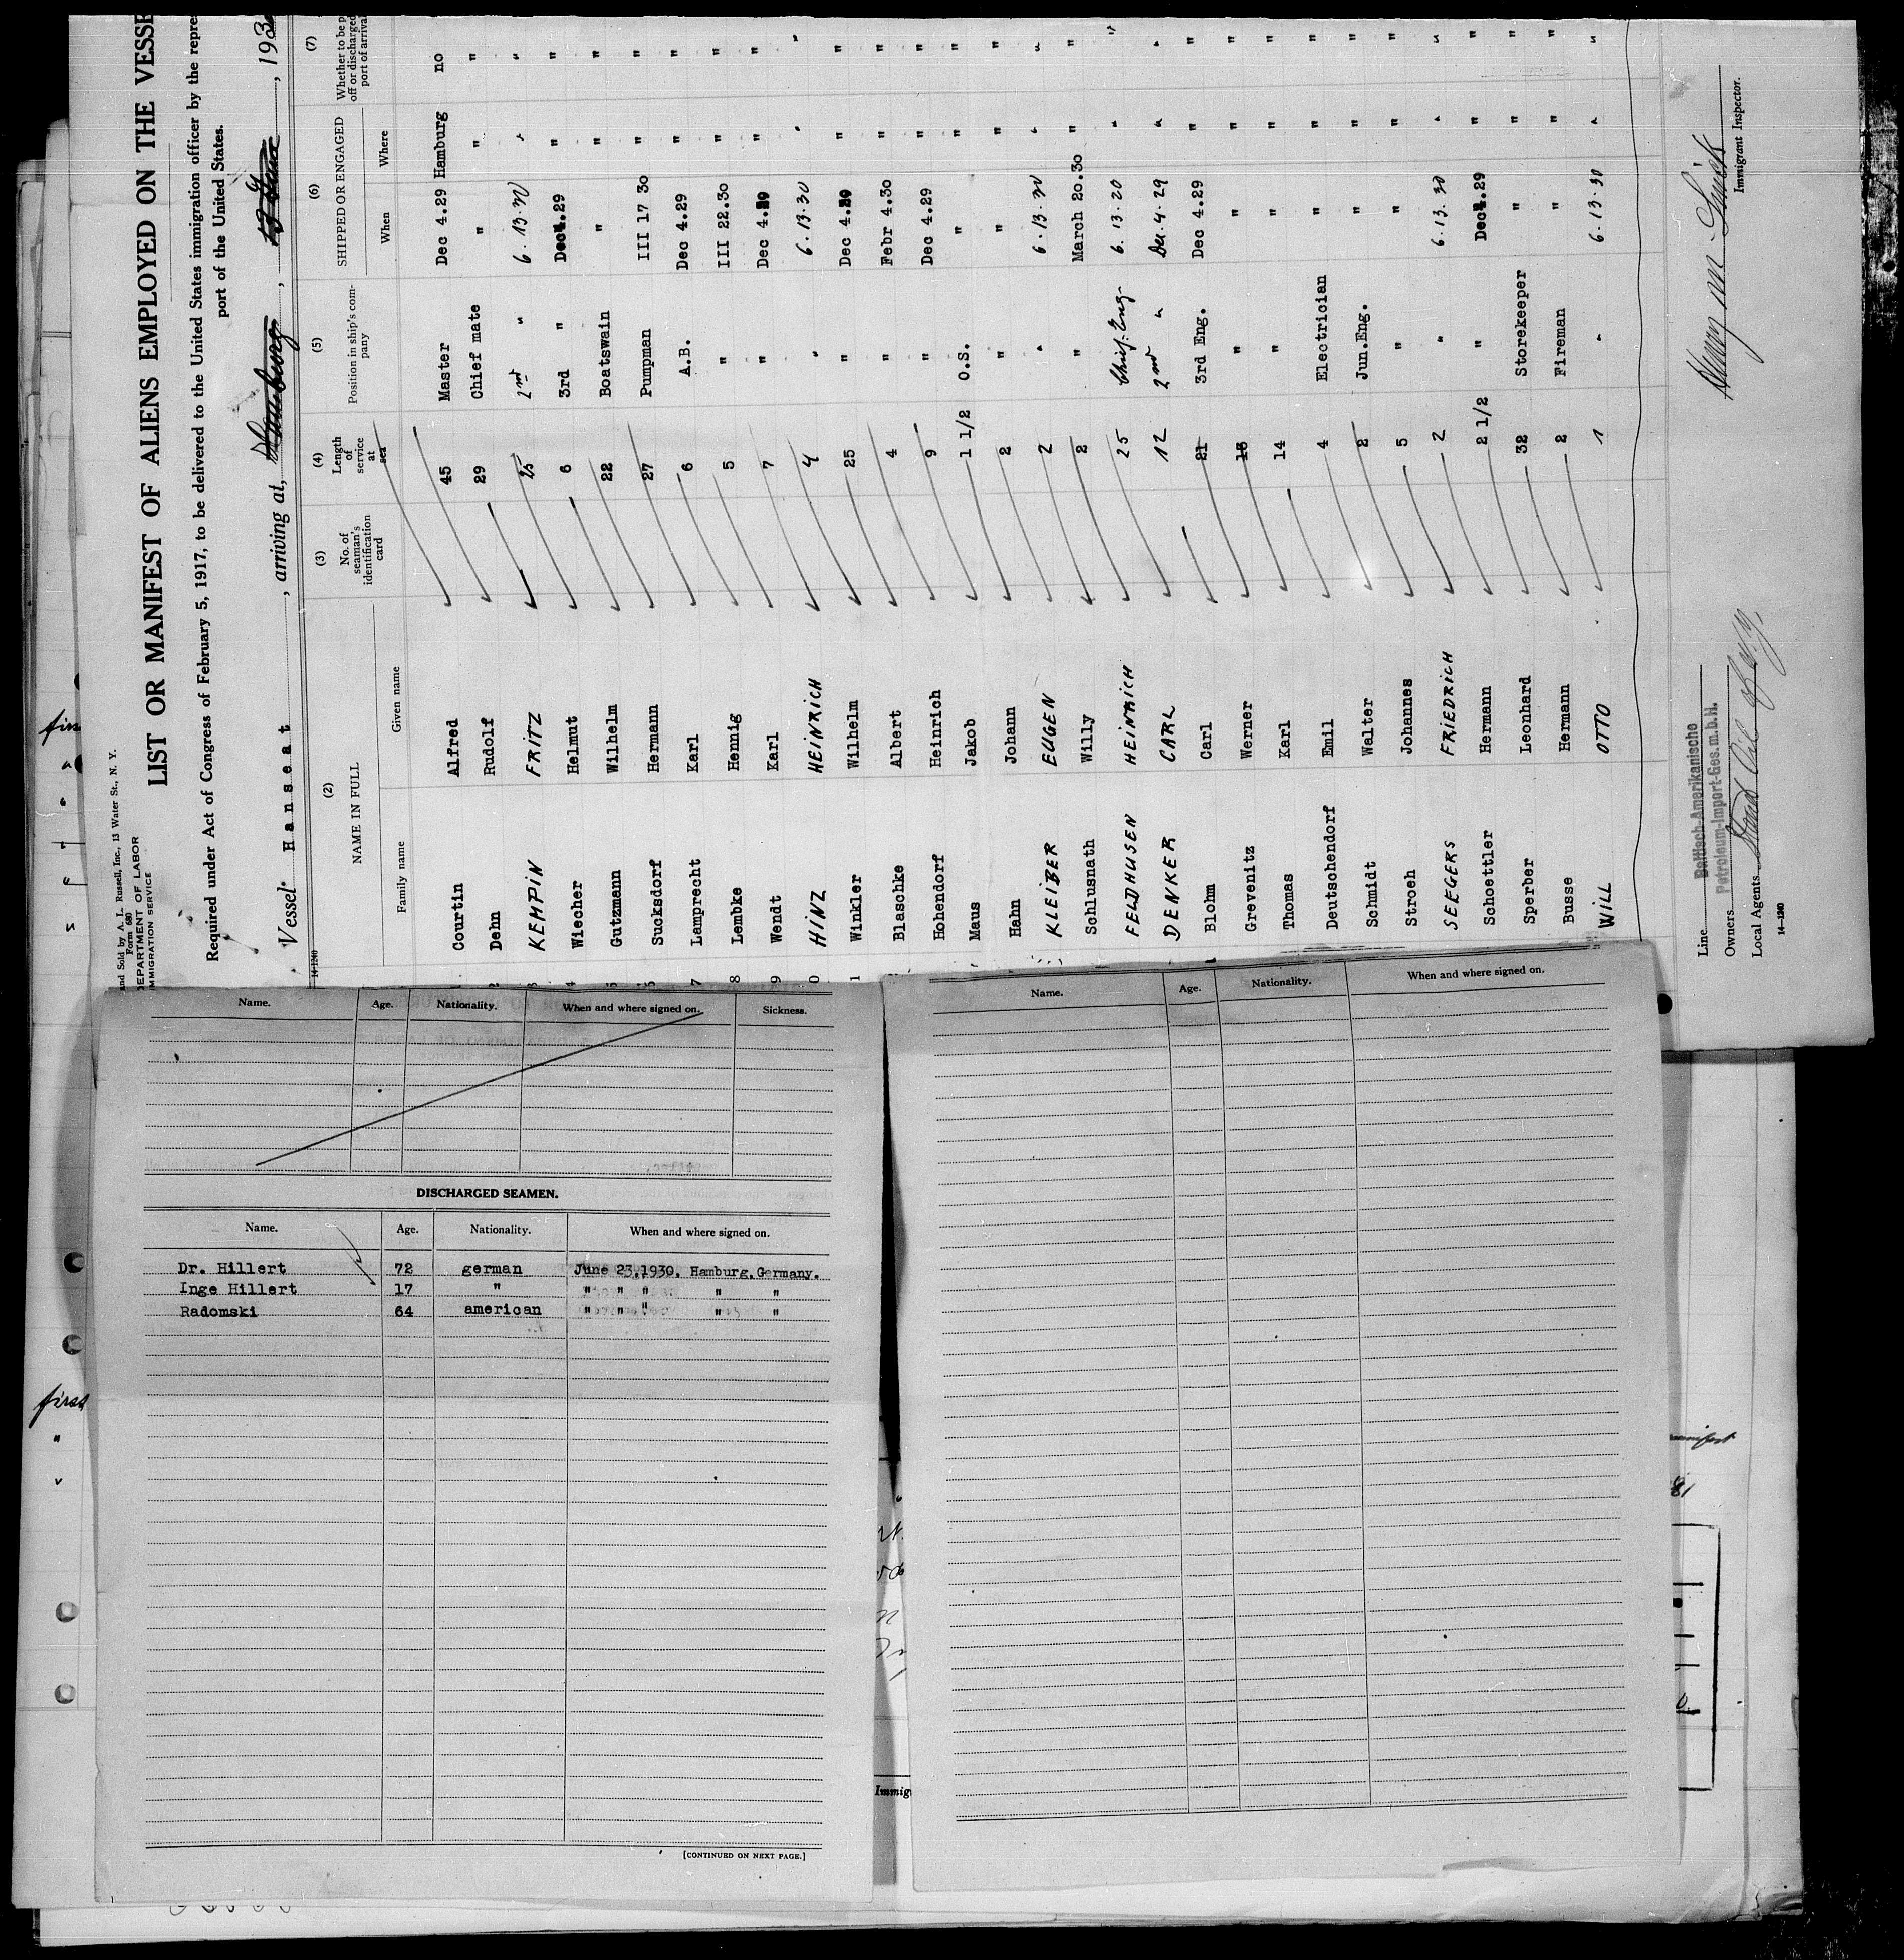 and Sold by A. L. Russell, Inc., 13 Water St., N. Y.
Form 680
DEPARTMENT OF LABOR
IMMIGRATION SERVICE
LIST OR MANIFEST OF ALIENS EMPLOYED ON THE VESSE
Required under Act of Congress of February 5, 1917, to be delivered to the United States immigration officer by the repres
port of the United States.
Vessel Hanseat , arriving at, Hamburg , , 193
14-1240
(2) (3) (4) (5) (6) (7)
NAME IN FULL No. of seaman's identification card Length of service at sea Position in ship's company SHIPPED OR ENGAGED Whether to be p off or discharged port of arrival
Family name Given name When Where
Courtin Alfred 45 Master Dec 4.29 Hamburg no
Dehn Rudolf 29 Chief mate " " "
KEMPIN FRITZ 25 2nd " 6.13.30 " "
4 Wiecher Helmut 6 3rd " Dec 4.29 " "
Gutzmann Wilhelm 22 Boatswain " " "
Sucksdorf Hermann 27 Pumpman III 17 30 " "
7 Lamprecht Karl 6 A.B. Dec 4.29 " "
8 Lembke Hennig 5 " III 22.30 " "
9 Wendt Karl 7 " Dec 4. " "
0 HINZ HEINRICH 4 " 6.13.30 " "
1 Winkler Wilhelm 25 " Dec 4. " "
Blaschke Albert 4 " Febr 4.30 " "
Hohendorf Heinrich 9 " Dec 4.29 " "
Maus Jakob 1 1/2 O.S. " " "
Hahn Johann 2 " " " "
KLEIBER EUGEN 2 " 6.13.30 " "
Schlusnath Willy 2 " March 20.30 " "
FELDHUSEN HEINRICH 25 Chief-Eng. 6.13.20 " "
DENKER CARL 12 2nd " Dec.4.29 " "
Blohm Carl 21 3rd Eng. Dec 4.29 " "
Grevenitz Werner 13 " " " "
Thomas Karl 14 " " " "
Deutschendorf Emil 4 Electrician " " "
Schmidt Walter 2 Jun.Eng. " " "
Stroeh Johannes 5 " " " "
SEEGERS FRIEDRICH 2 " 6.13.30 " "
Schoettler Hermann 2 1/2 " Dec 4.29 " "
Sperber Leonhard 32 Storekeeper " " "
Busse Hermann 2 Fireman " " "
WILL OTTO 1 " 6.13.30 " "
Line Baltisch-Amerikanische
Owners Petroleum-Import-Ges.m.b.H.
Local Agents Stand Oil of N.Y.
14-1240
Immigrant Inspector.
Name. Age. Nationality. When and where signed on. Sickness.
DISCHARGED SEAMEN.
Name. Age. Nationality. When and where signed on.
Dr. Hillert 72 german June 23,1930, Hamburg,Germany.
Inge Hillert 17 " " " " " "
Radomski 64 american " " " " "
[CONTINUED ON NEXT PAGE.]
Name. Age. Nationality. When and where signed on.
first
Immig
81